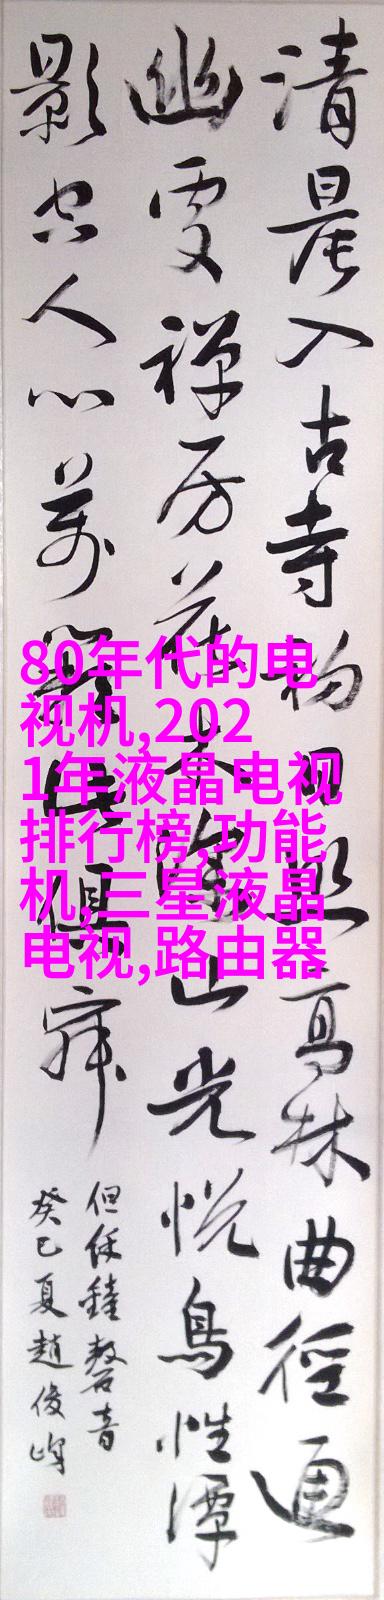 清晨入古寺初日照高林曲徑通
幽處禪房花木深山光悅鳥性潭
影空人心萬籟此俱寂
但餘鐘磬音
癸巳夏趙俊峰
80年代的电
视机,202
1年液晶电视
排行榜,功能
机,三星液晶
电视,路由器